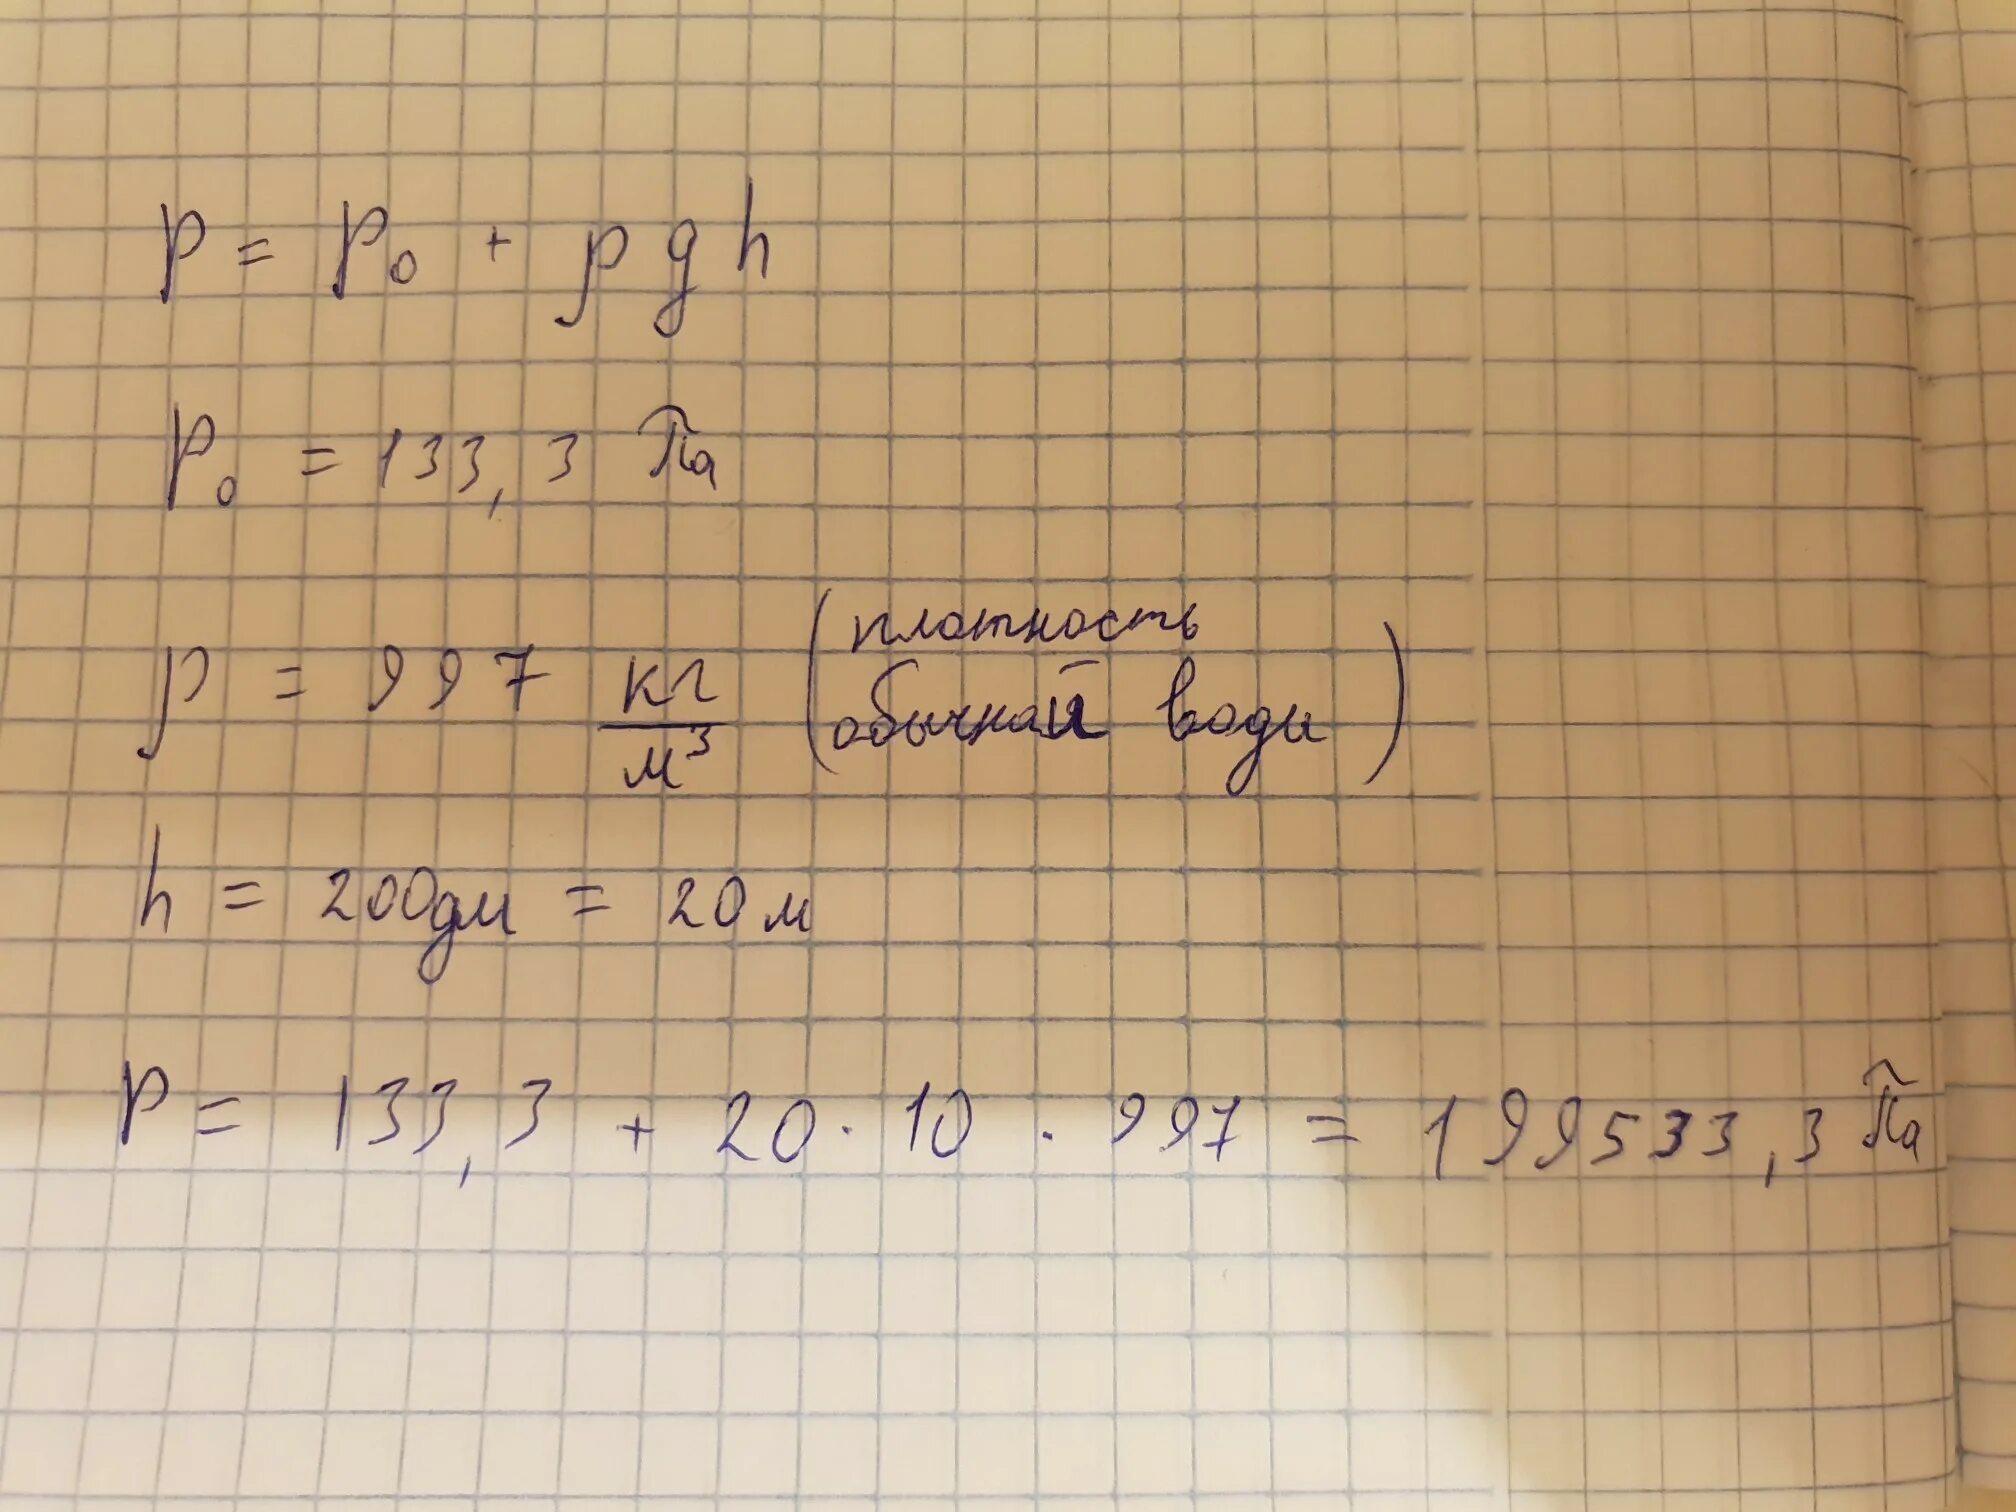 P = P₀ + ρ g h
P₀ = 133,3 Па
ρ = 997 кг/м³ (плотность
обычной води)
h = 200дм = 20м
P = 133,3 + 20 · 10 · 997 = 199533,3 Па